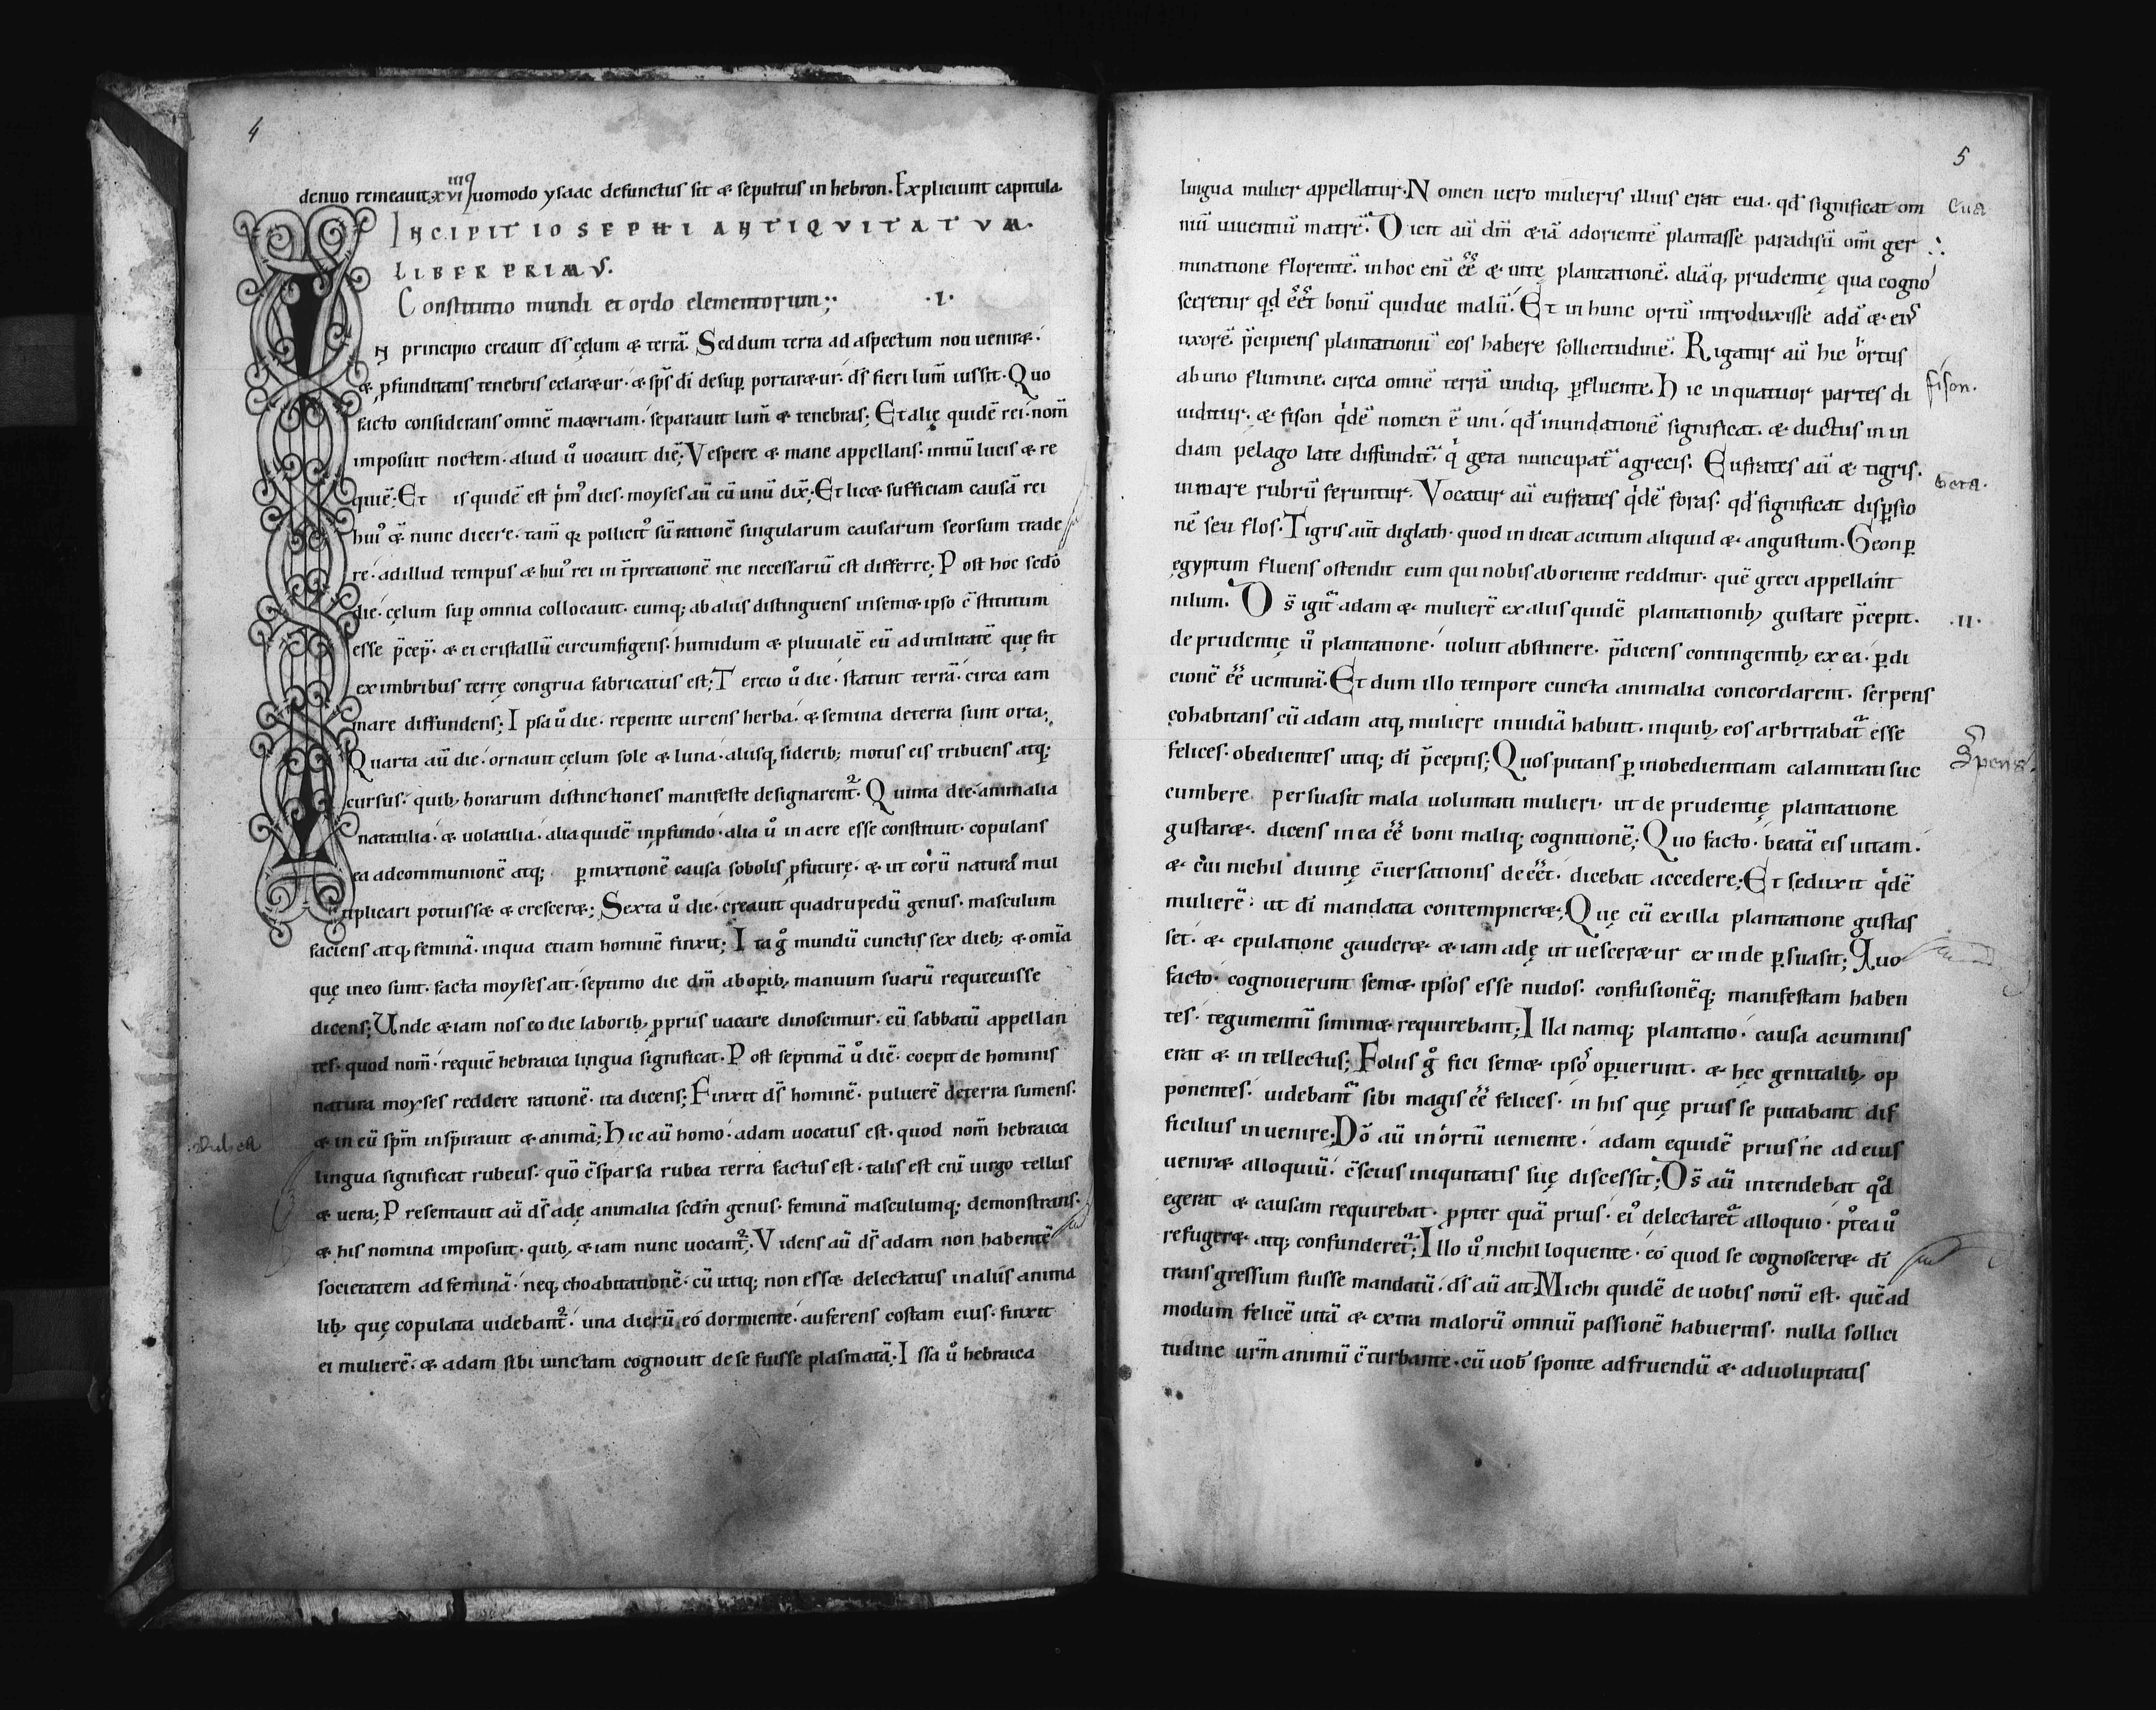 4
denuo remeauit. xviiii Quomodo ysaac defunctus sit æ sepultus in hebron. Expliciunt capitula.
INCIPIT IOSEPHI ANTIQVITATVM.
LIBER PRIMVS.
Constitutio mundi et ordo elementorum;; .I.
IN principio creauit d̄s cęlum æ terrā. Sed dum terra ad aspectum non uenir&.
& ꝓfunditatis tenebris celar&ur. & sp̄s dī desuꝑ portar&ur. d̄s fieri lum̄ iussit. Quo
facto considerans omnē mat&riam. separauit lum̄ & tenebras; Et alię quidē rei. nom̄
imposuit noctem. aliud ů uocauit diē; Vespere & mane appellans. initiū lucis & re
quiē. Et is quidē est p̍m᷒ dies. moyses aū eū unū dix̄; Et lic& sufficiam causā rei
hui᷒ & nunc dicere. tam̄ qꝛ pollicit᷒ sū rationē singularum causarum seorsum trade
re. ad illud tempus & hui᷒ rei in t̄pretationē me necessariū est differre; Post hoc sedō
die. cęlum suꝑ omnia collocauit. eumq; ab aliis distinguens in sem& ipso c̄stitutum
esse p̄cep̄. & ei cristallū circumfigens. humidum & pluuialē eū ad utilitatē quę fit
ex imbribus terrę congrua fabricatus est; Tercio ů die. statuit terrā. circa eam
mare diffundens; Ipsa ů die. repente uirens herba. & semina de terra sunt orta;
Quarta aū die. ornauit cęlum sole & luna. aliisq, siderib; motus eis tribuens atq;
cursus. quib, horarum distinctiones manifeste designarent̄. Quinta die. animalia
natatilia. & uolatilia. alia quidē in ꝓfundo. alia ů in aere esse constituit. copulans
ea ad communionē atq; ꝑmixtionē causa sobolis ꝓfuturę. & ut eorū natura mul
tiplicari potuiss& & crescer&; Sexta ů die. creauit quadrupedū genus. masculum
faciens atq, feminā. in qua etiam hominē finxit; Ita g̊ mundū cunctis sex dieb; & omīa
quę in eo sunt. facta moyses ait. septimo die dm̄ ab oꝑib, manuum suarū requieuisse
dicens; Unde &iam nos eo die laborib, ꝓprus uacare dinoscimur. eū sabbatū appellan
tes. quod nom̄. requiē hebraica lingua significat. Post septimā ů diē. coepit de hominis
natura moyses reddere rationē. ita dicens; Finxit d̄s hominē. puluerē de terra sumens.
& in eū sp̄m inspirauit & animā; Hic aū homo. adam uocatus est. quod nom̄ hebraica
lingua significat rubeus. quō c̄sparsa rubea terra factus est. talis est enī uirgo tellus
& uera; Presentauit aū d̄s adę animalia scd̄m genus. feminā masculumq; demonstrans.
& his nomina imposuit. quib, &iam nunc uocant̄; Videns aū d̄s adam non habentē
societatem ad feminā. neq, choabitationē. cū utiq; non ess& delectatus in aliis anima
lib, quę copulata uidebant̄. una dierū eo dormiente. auferens costam eius. finxit
ei mulierē. & adam sibi uinctam cognouit de se fuisse plasmatā; Issa ů hebraica
5
lingua mulier appellatur. Nomen uero mulieris illius erat eua. qd̄ significat om
niū uiuentiū matrē. Dicit aū dm̄ &iā ad orientē plantasse paradisū om̄i ger
minatione florentē. in hoc enī ee͞ & uitę plantationē. aliāq, prudentię qua cogno
sceretur qd̄ ee͞t bonū quidue malū. Et in hunc ortū introduxisse adā & ei᷒
uxorē. p̄cipiens plantationū eos habere sollicitudinē. Rigatur aū hic ortus
ab uno flumine. circa omnē terrā undiq, ꝑfluente. Hic in quatuor partes di
uiditur. & fison q̍dē nomen ē uni. qd̄ inundationē significat. & ductus in in
diam pelago late diffundit̄. q̍ geta nuncupat̄ a grecis. Eufrates aū & tigris.
in mare rubrū feruntur. Vocatur aū eufrates q̍dē foras. qd̄ significat disꝑsio
nē seu flos. Tigris aut̄ diglath. quod indicat acutum aliquid & angustum. Geon ꝑ
ęgyptum fluens ostendit eum qui nobis ab oriente redditur. quē greci appellant
nilum. D̄s igit̄ adam & mulierē ex aliis quidē plantationib, gustare p̄cepit.
de prudentię ů plantatione. uoluit abstinere. p̄dicens contingentib, ex ea. ꝑdi
cionē ee͞ uenturā. Et dum illo tempore cuncta animalia concordarent. serpens
cohabitans cū adam atq, muliere inuidiā habuit. in quib, eos arbitrabat̄ esse
felices. obedientes utiq; dī p̄ceptis; Quos putans ꝑ inobedientiam calamitati suc
cumbere persuasit mala uoluntati mulieri. ut de prudentię plantatione
gustar&. dicens in ea ee͞ boni maliq; cognitionē; Quo facto. beatā eis uitam.
& cui nichil diuinę c̄uersationis deee͞t. dicebat accedere; Et seduxit q̍dē
mulierē. ut dī mandata contempner&; Quę cū ex illa plantatione gustas
set. & epulatione gauder& &iam adę ut uescer&ur ex inde ꝑsuasit; Quo
facto. cognouerunt sem& ipsos esse nudos. confusionēq; manifestam haben
tes. tegumentū sinim& requirebant; Illa namq; plantatio. causa acuminis
erat & intellectus; Foliis g̊ fici sem& ipsos oꝑuerunt. & hęc genitalib, op
ponentes. uidebant̄ sibi magis ee͞ felices. in his quę prius se putabant dif
ficilius inuenire; Dō aū in ortū uemente. adam equidē prius ne ad eius
uenir& alloquiū. c̄scius iniquitatis suę discessit; D̄s aū intendebat qd̊
egerat & causam requirebat. ꝓpter quā prius. ei᷒ delectaret̄ alloquio. p᷒tea ů
refuger& atq; confunderet̄; Illo ů nichil loquente. eo quod se cognoscer& dī
transgressum fuisse mandatū. d̄s aū ait; Michi quidē de uobis notū est. quē ad
modum felicē uitā & extra malorū omniū passionē habueritis. nulla sollici
tudine ur̄m animū c̄turbante. cū uob̄ sponte ad fruendū & ad uoluptatis
eua
fison.
Geta.
.II.